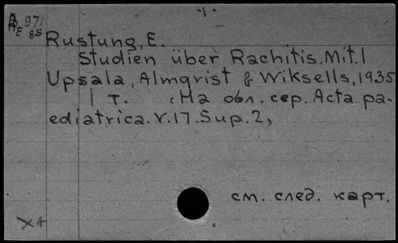 -1-
Rustung, E.
Studien über Rachitis. Mit. 1
Upsala, Almqvist & Wiksells, 1935
1 т. (На обл. сер. Acta pa-
ediatrica. V. 17. Sup. 2,
см. след. карт.